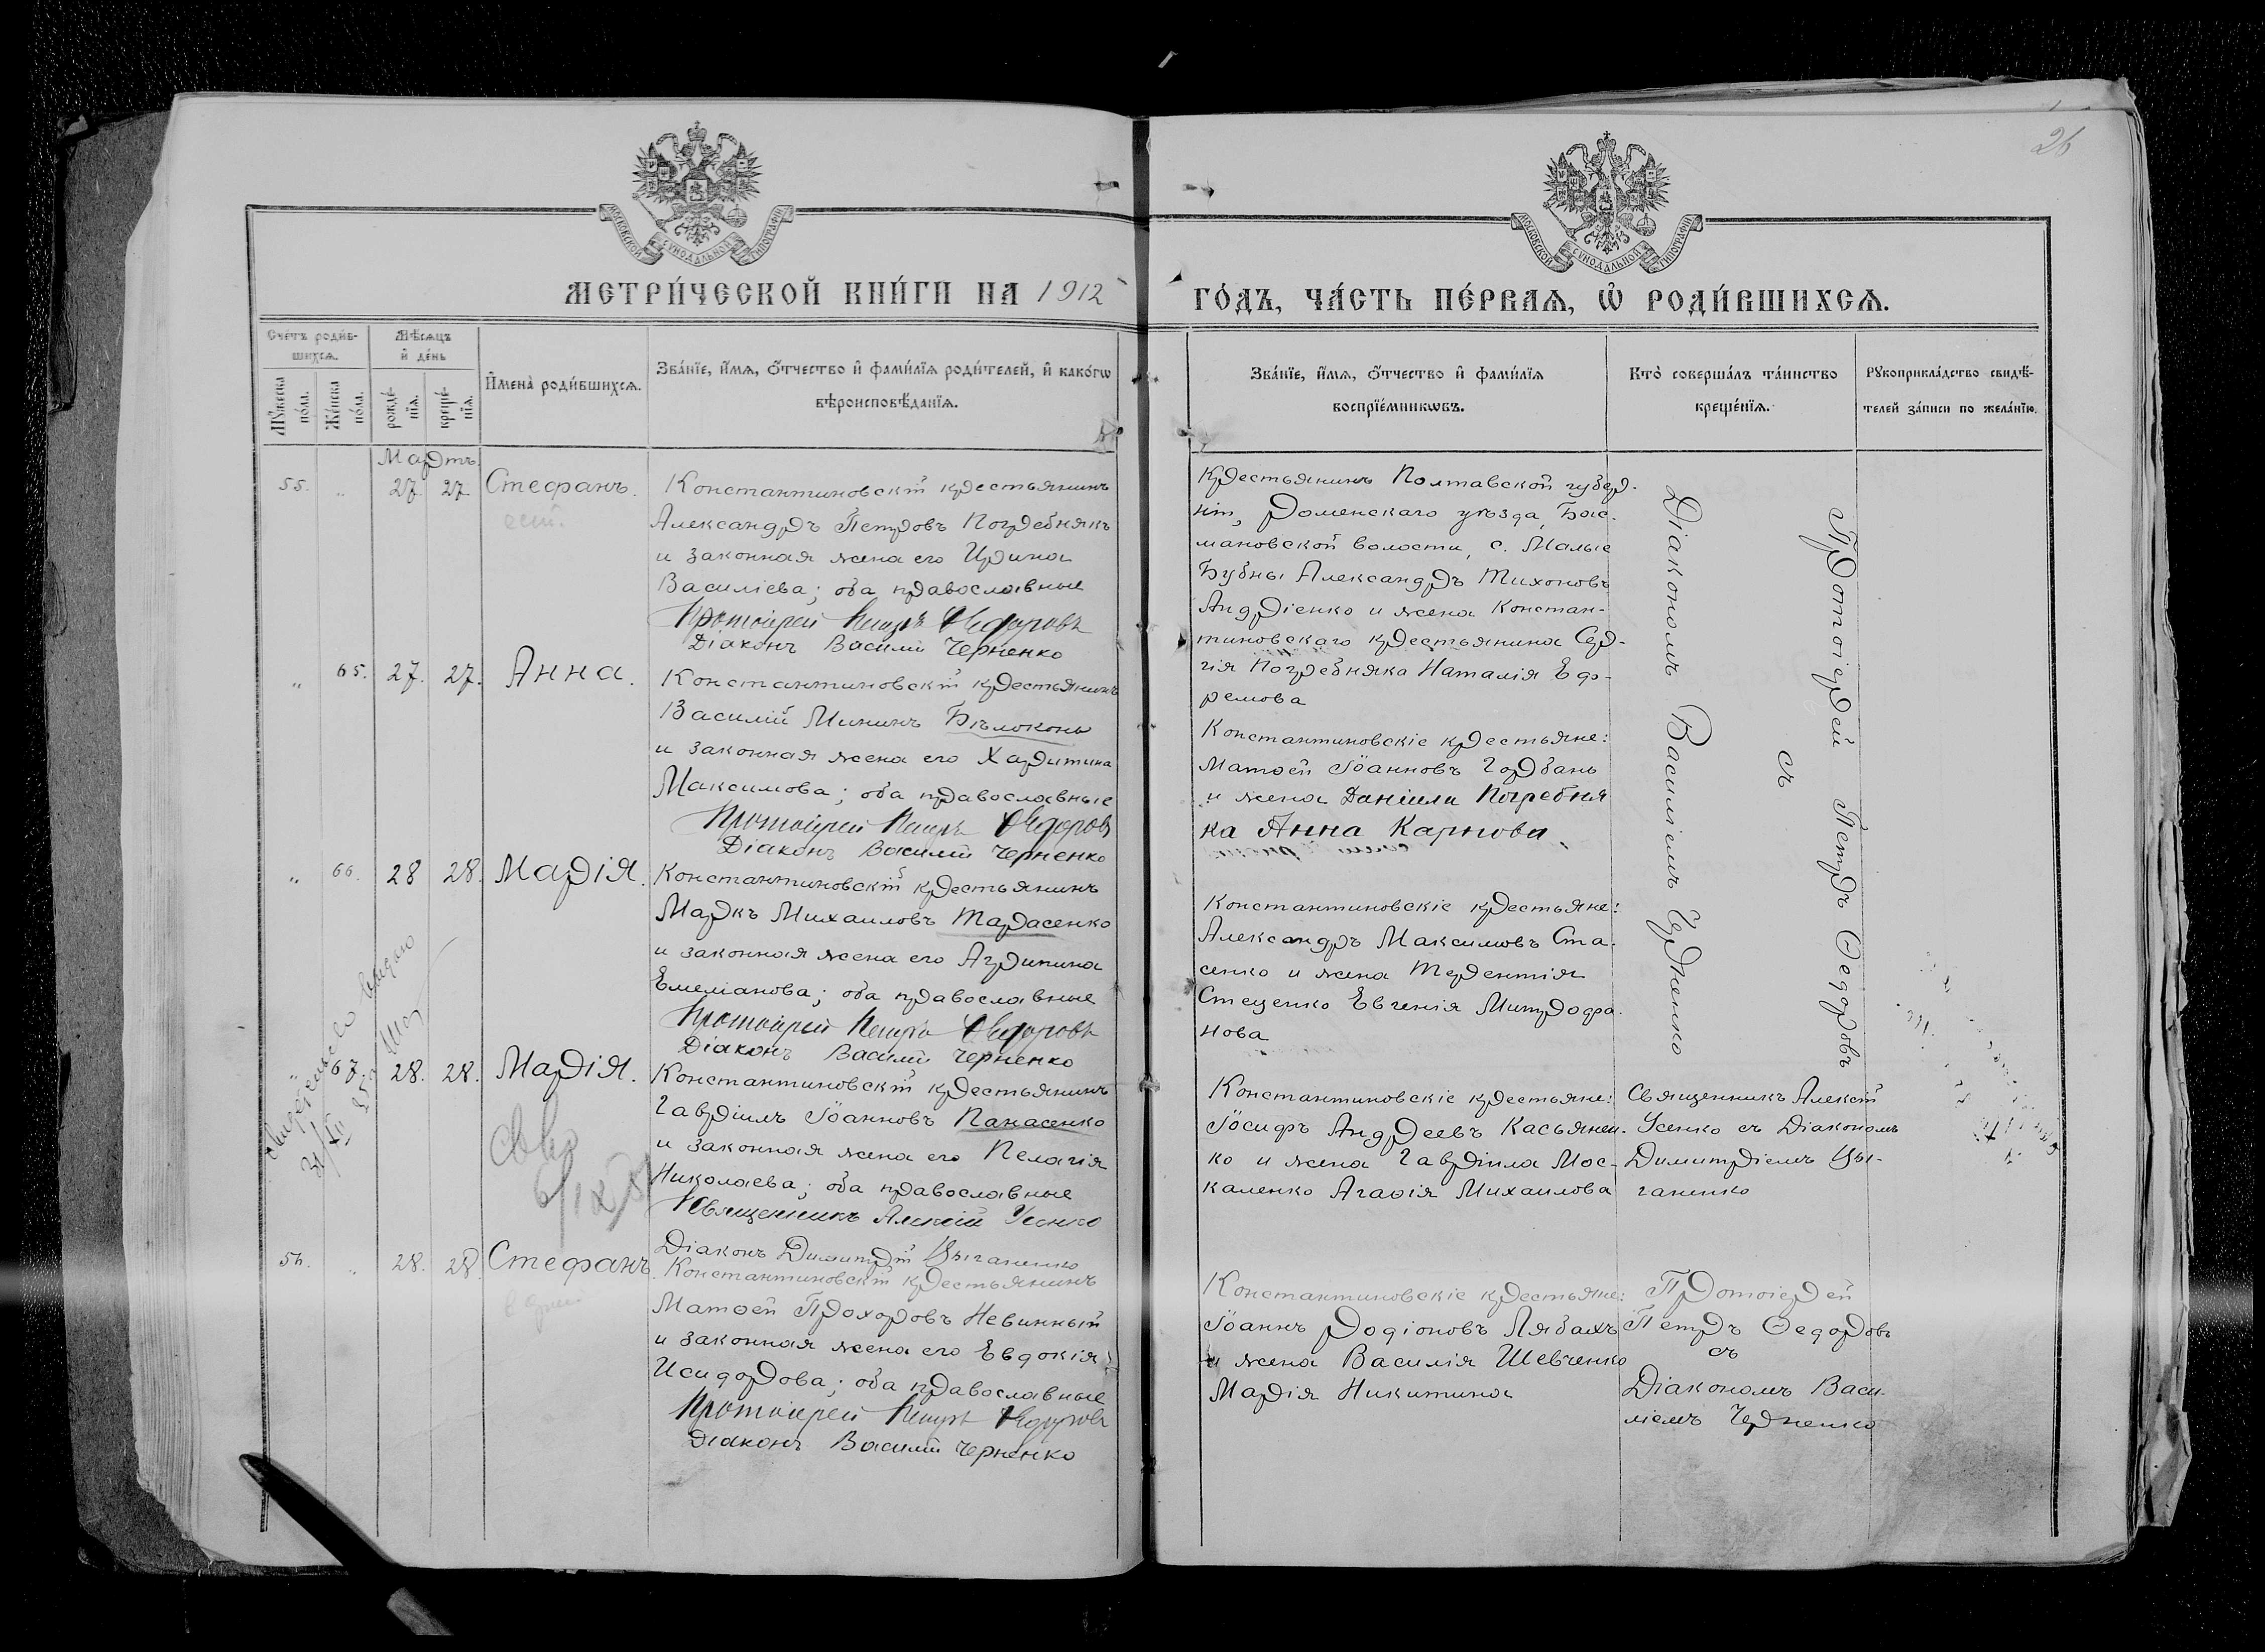 26
МОСКОВСКОЙ СѴНОДАЛЬНОЙ ТИПОГРАФІИ
МОСКОВСКОЙ СѴНОДАЛЬНОЙ ТИПОГРАФІИ
МЕТРИ́ЧЕСКОЙ КНИ́ГИ НА 1912
ГО́ДЪ, ЧА́СТЬ ПЕ́РВАѦ, Ѡ҆ РОДИ́ВШИХСѦ.
Сче́тъ роди́в-
шихсѧ.
Мꙋ́жеска по́ла.
Же́нска по́ла.
Мѣ́сѧцъ
и҆ де́нь
рожде́-
нїѧ.
креще́-
нїѧ.
И҆мена̀ роди́вшихсѧ.
Зва́нїе, и҆́мѧ, ѻ҆́тчество и҆ фами́лїѧ роди́телей, и҆ како́гѡ
вѣроисповѣ́данїѧ.
Зва́нїе, и҆́мѧ, ѻ҆́тчество и҆ фами́лїѧ
воспрїе́мникѡвъ.
Кто̀ соверша́лъ та́инство
креще́нїѧ.
Рꙋкоприкла́дство свидѣ́-
телей за́писи по жела́нїю.
Мартъ.
55. „ 27. 27. Стефанъ.
Константиновскій крестьянинъ
Александръ Петровъ Погребнякъ
и законная жена его Ирина
Василіева; оба православные
Протоіерей Петръ Ѳедоровъ
Діаконъ Василій Черненко
Крестьянинъ Полтавской губер-
ніи, Роменскаго уѣзда, Бас-
мановской волости, с. Малые
Бубны Александръ Тихоновъ
Андріенко и жена Констан-
тиновскаго крестьянина Сер-
гія Погребняка Наталія Еф-
ремова
Протоіерей Петръ Ѳедоровъ
съ
Діакономъ Василіемъ Черненко
„ 65. 27. 27. Анна.
Константиновскій крестьянинъ
Василій Мининъ Бѣлоконь
и законная жена его Харитина
Максимова; оба православные
Протоіерей Петръ Ѳедоровъ
Діаконъ Василій Черненко
Константиновскіе крестьяне:
Матѳей Іоанновъ Горбань
и жена Даніила Погребня
ка Анна Карпова.
„ 66. 28 28. Марія.
Константиновскій крестьянинъ
Маркъ Михаиловъ Тарасенко
и законная жена его Агрипина
Емеліанова; оба православные
Протоіерей Петръ Ѳедоровъ
Діаконъ Василій Черненко
Константиновскіе крестьяне:
Александръ Максимовъ Ста-
сенко и жена Терентія
Стеценко Евгенія Митрофа-
нова
„ 67. 28. 28. Марія.
Константиновскій крестьянинъ
Гавріилъ Іоанновъ Панасенко
и законная жена его Пелагія
Николаева; оба православные
Священникъ Алексій Усенко
Діаконъ Димитрій Цыганенко
Константиновскіе крестьяне:
Іосифъ Андреевъ Касьянен-
ко и жена Гавріила Мос-
каленко Агафія Михаилова
Священникъ Алексій
Усенко съ Діакономъ
Димитріемъ Цы-
ганенко
56. „ 28. 28. Стефанъ.
Константиновскій крестьянинъ
Матѳей Прохоровъ Невинный
и законная жена его Евдокія
Исидорова; оба православные
Протоіерей Петръ Ѳедоровъ
Діаконъ Василій Черненко
Константиновскіе крестьяне:
Іоаннъ Родіоновъ Лябахъ
и жена Василія Шевченко
Марія Никитина
Протоіерей
Петръ Ѳедоровъ
съ
Діакономъ Васи-
ліемъ Черненко